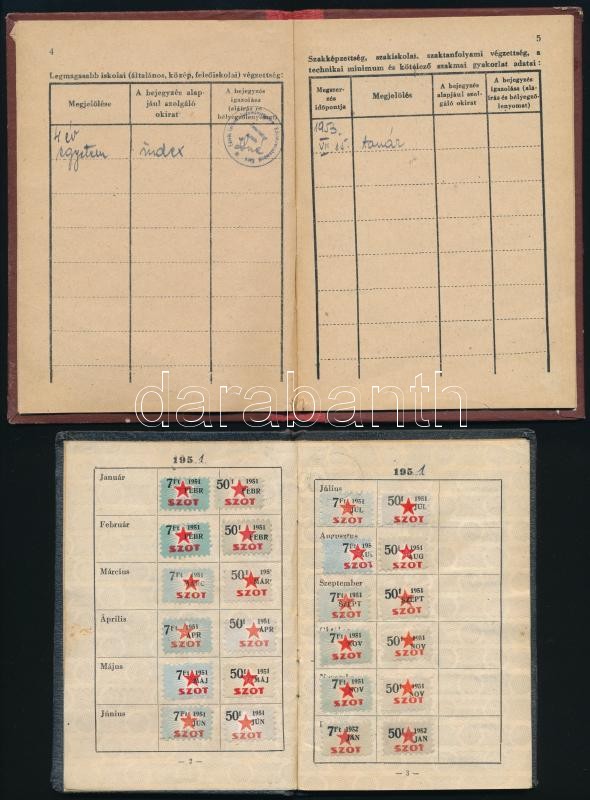 4
Legmagasabb iskolai (általános, közép, felsőiskolai) végzettség:
Megjelölése
A bejegyzés alap-
jául szolgáló
okirat
A bejegyzés
igazolása
(aláírás és
bélyegzőlenyomat)
4 év
egyetem
index
5
Szakképzettség, szakiskolai, szaktanfolyami végzettség, a
technikai minimum és kötelező szakmai gyakorlat adatai:
Megszer-
zés
időpontja
Megjelölés
A bejegyzés
alapjául szol-
gáló okirat
A bejegyzés
igazolása (alá-
írás és bélyegző-
lenyomat)
1953.
VII 15.
tanár
darabanth
1951
Január
7Ft 1951 FEBR SZOT
50f 1951 FEBR SZOT
Február
7Ft 1951 FEBR SZOT
50f 1951 FEBR SZOT
Március
7Ft 1951 MÁRC SZOT
50f 195 MÁR SZOT
Április
7Ft 1951 ÁPR SZOT
50f 1951 ÁPR SZOT
Május
7Ft 1951 MÁJ SZOT
50f 1951 MÁJ SZOT
Június
7Ft 1951 JUN SZOT
50f 1951 JUN SZOT
— 2 —
1951
Július
7Ft 1951 JUL SZOT
50f 1951 JUL SZOT
Augusztus
7Ft 195 SZOT
50f 1951 AUG SZOT
Szeptember
7Ft 1951 SZEPT SZOT
50f 1951 SZEPT SZOT
7Ft 1951 NOV SZOT
50f 1951 NOV SZOT
7Ft 1951 NOV SZOT
50f 1951 NOV SZOT
7Ft 1952 JAN SZOT
50f 1952 JAN SZOT
— 3 —